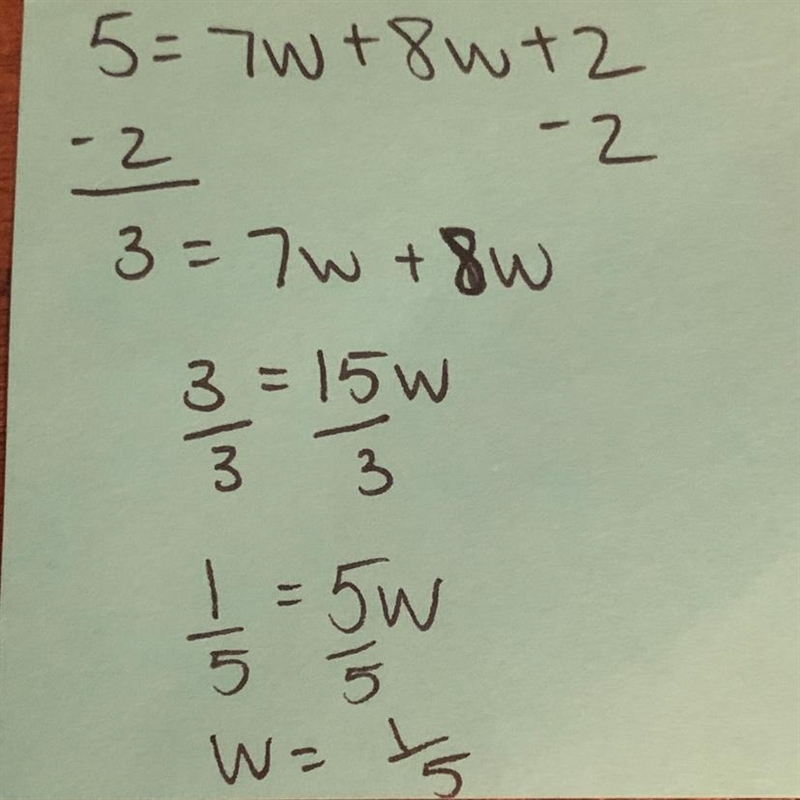 5 = 7w + 8w + 2
- 2 - 2
3 = 7w + 8w
3 = 15w
3 3
1 = 5w
5 5
w = 1/5